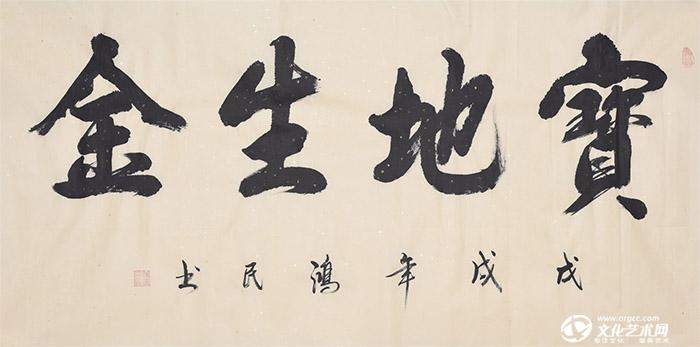 寶地生金
戊戌年鴻民书
www.orgcc.com
文化艺术网